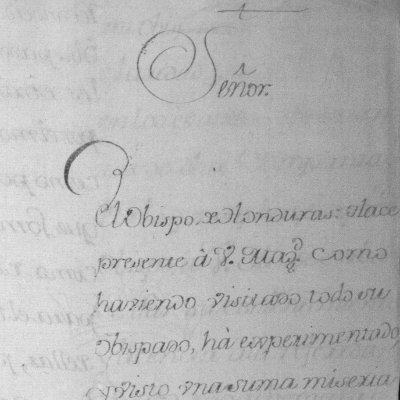 Señor.
El Obispo de Honduras: Hace
presente â V. Mag.d como
haviendo visitado todo su
Obispado, hà experimentado,
y visto una suma miseria